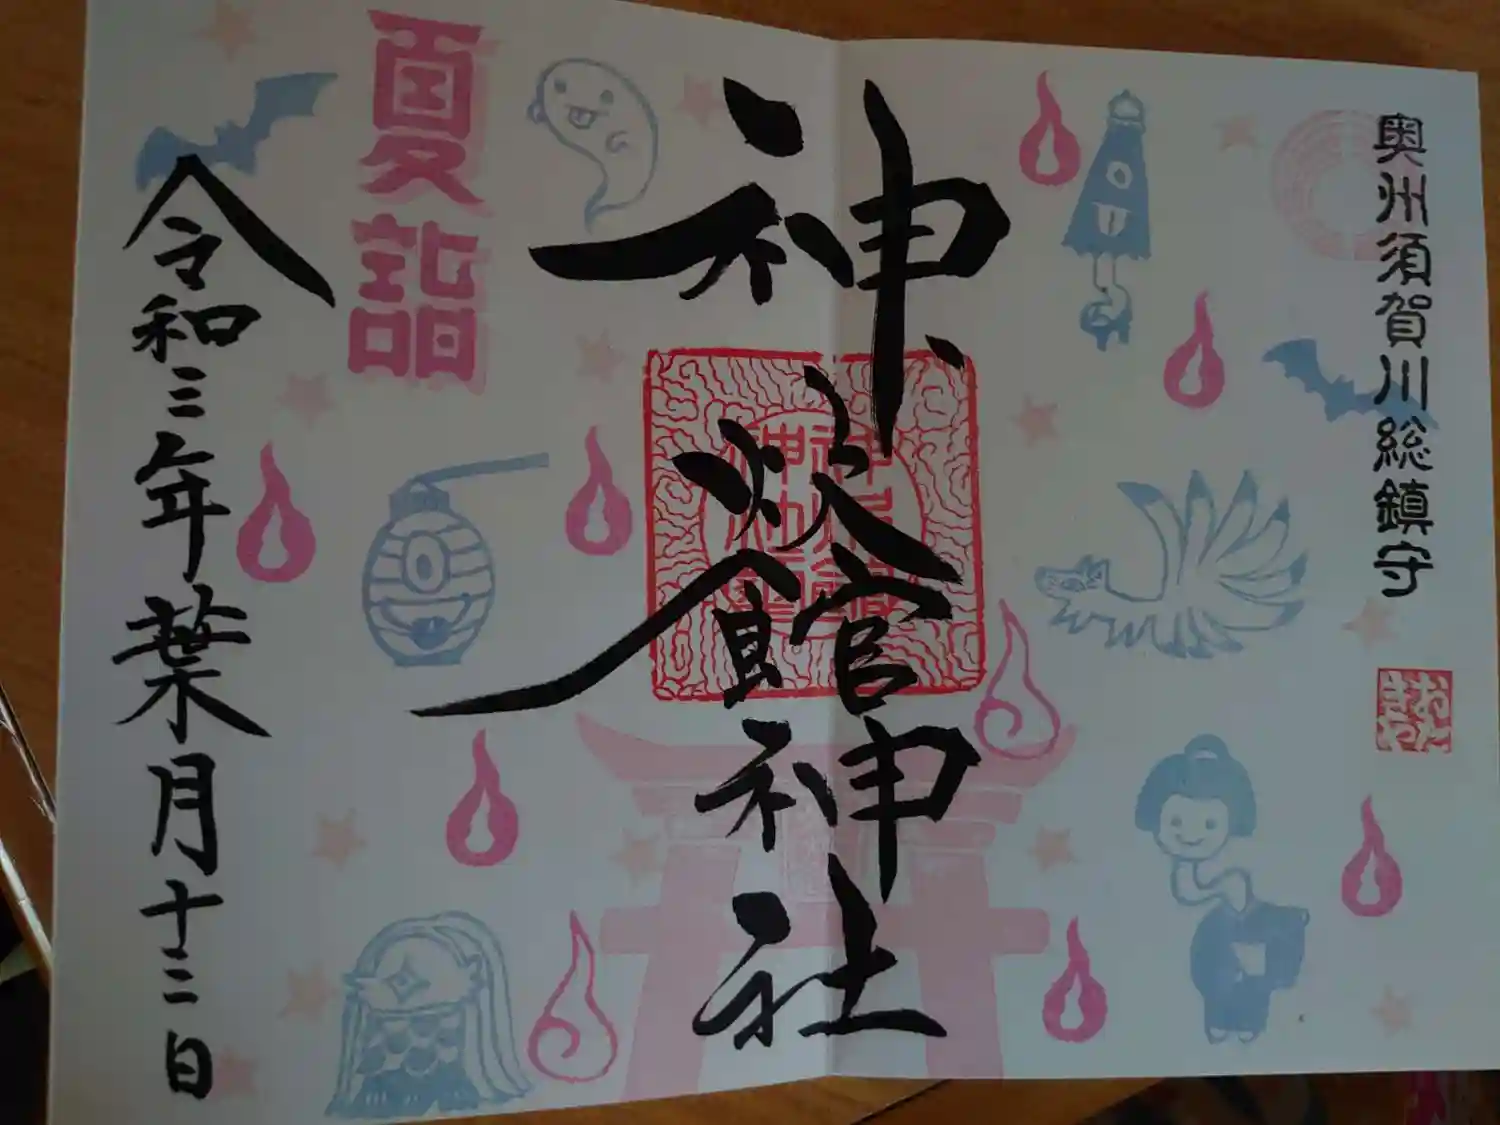 奥州須賀川総鎮守
おたきや
神炊館神社
夏詣
令和三年葉月十二日